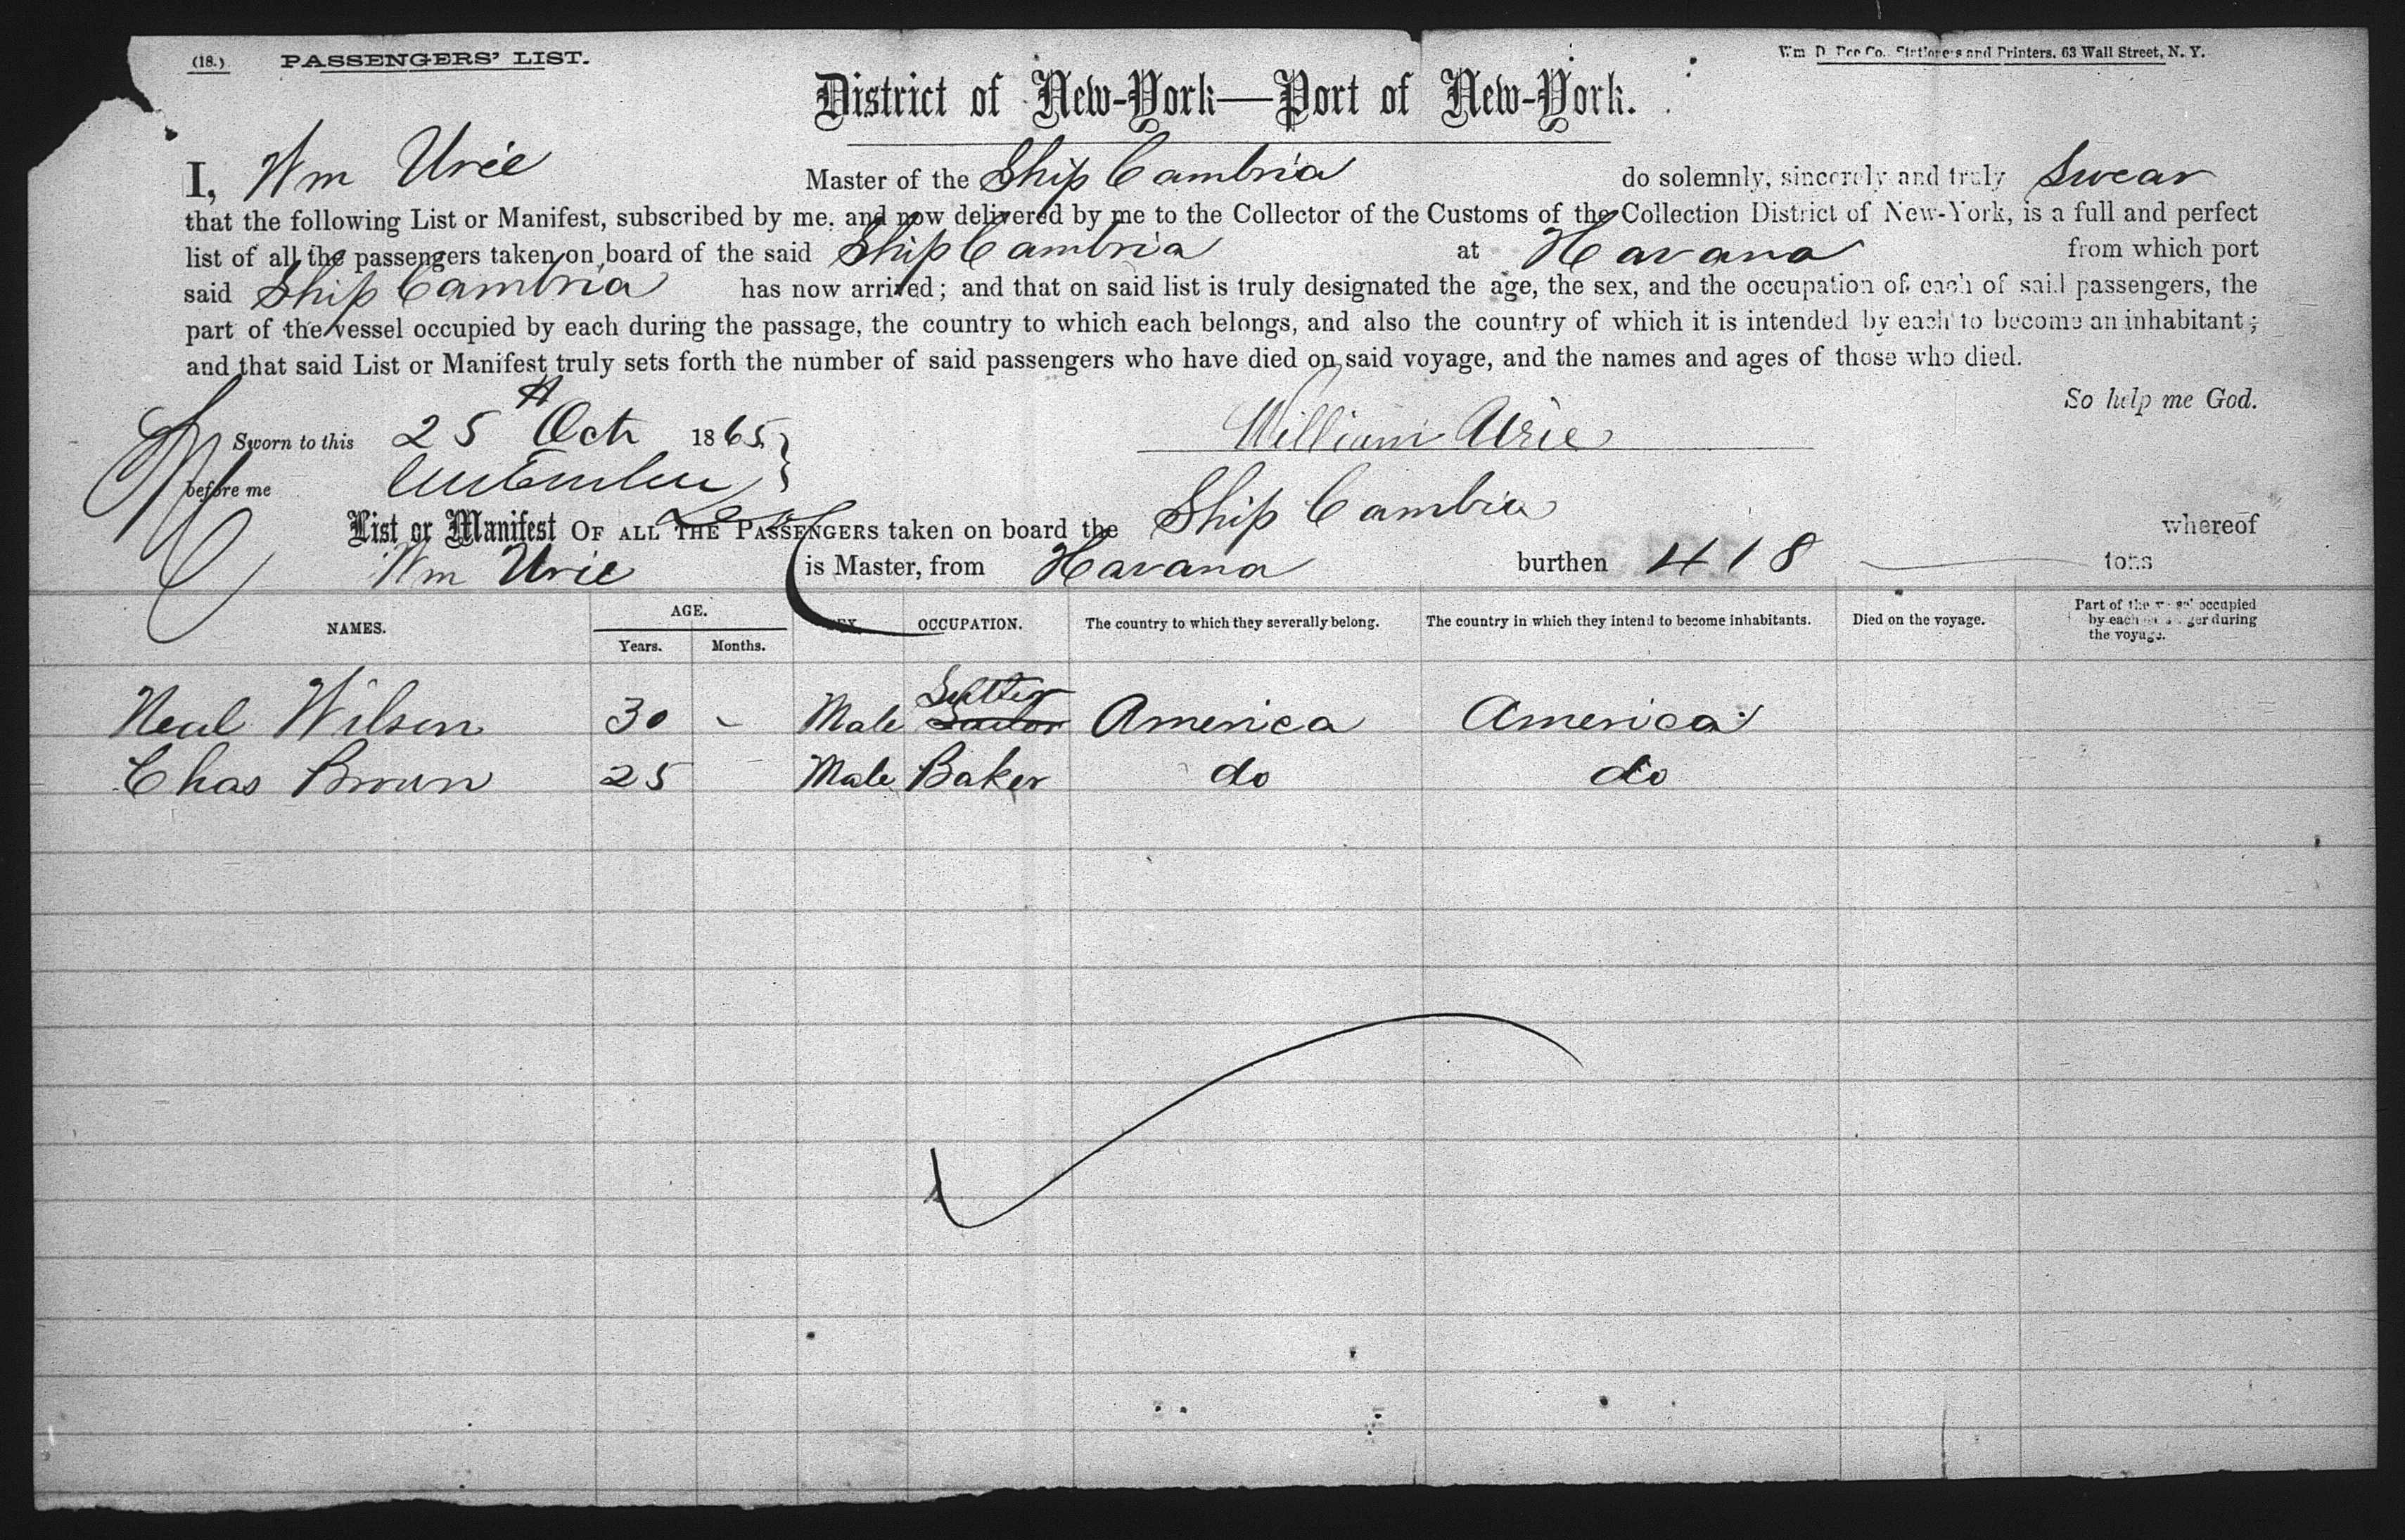 (18.) PASSENGERS' LIST. Wm D. Co., Stationers and Printers, 63 Wall Street, N. Y.
District of New-York—Port of New-York.
I, Wm Urie Master of the Ship Cambria do solemnly, sincerely and truly Swear
that the following List or Manifest, subscribed by me, and now delivered by me to the Collector of the Customs of the Collection District of New-York, is a full and perfect
list of all the passengers taken on board of the said Ship Cambria at Havana from which port
said Ship Cambria has now arrived; and that on said list is truly designated the age, the sex, and the occupation of each of said passengers, the
part of the vessel occupied by each during the passage, the country to which each belongs, and also the country of which it is intended by each to become an inhabitant;
and that said List or Manifest truly sets forth the number of said passengers who have died on said voyage, and the names and ages of those who died.
So help me God.
Sworn to this 25th Oct 1865 William Urie
before me
List or Manifest OF ALL THE PASSENGERS taken on board the Ship Cambria whereof
Wm Urie is Master, from Havana burthen 418 tons
NAMES. AGE. Years. Months. SEX. OCCUPATION. The country to which they severally belong. The country in which they intend to become inhabitants. Died on the voyage. Part of the vessel occupied by each passenger during the voyage.
Neal Wilson 30 - Male Sailor America America
Chas Brown 25 - Male Baker do do